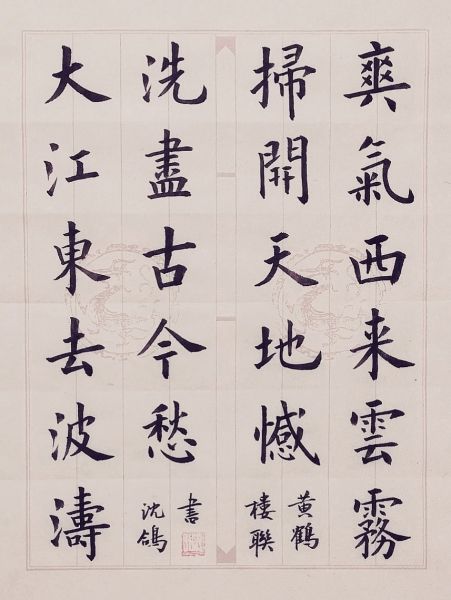 爽氣西来雲霧
掃開天地憾
黄鶴
樓聯
大江東去波濤
洗盡古今愁
沈鴿
書